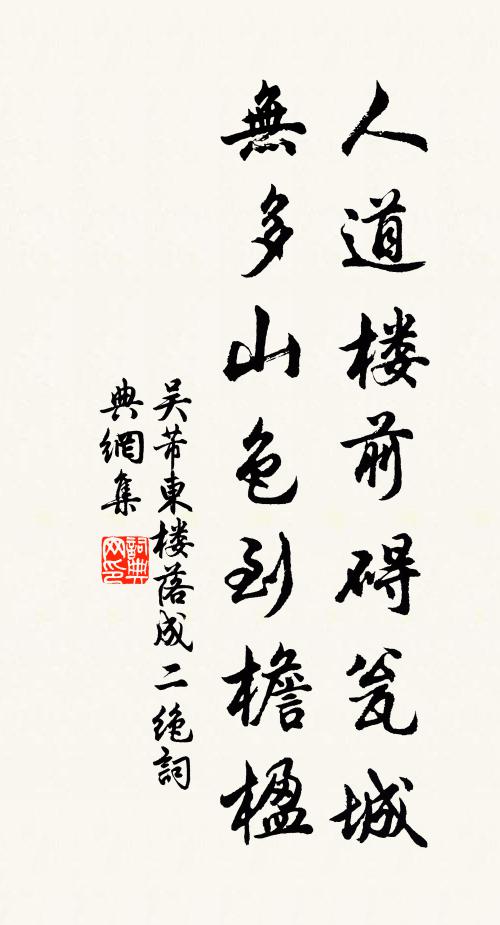 人道楼前碍瓮城
無多山色到檐楹
吴芾東楼落成二绝詞
典網集
詞典网印